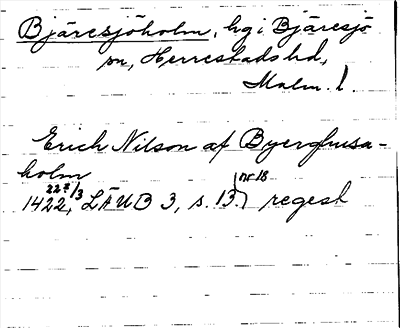 Bjäresjöholm, hg i Bjäresjö
sn, Herrestads hd,
Malm. l.
Erich Nilson af Byerghusa-
holm
1422 22/3, LÄUB 3, s. 13 (nr 18) regest